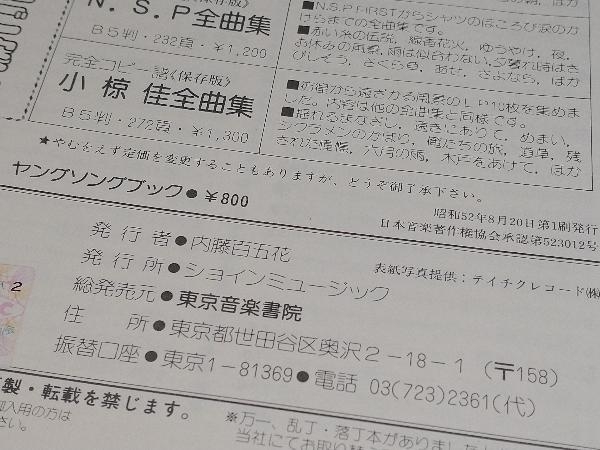 N.S.P全曲集
B5判・232頁・¥1,200
完全コピー譜《保存版》
小椋 佳全曲集
B5判・272頁・¥1,300
■N.S.P FIRSTからシャツのほころび涙のか
けらまでの全曲集です。
■赤い糸の伝説, 線香花火, ゆうやけ, 夜,
お休みの風景, 雨は似合わない, 夕暮れ時はさ
びしそう, さくら草, あせ, さよなら, ほか
した。内容は他の全曲集と同様です。
■揺れるまなざし, 遠きにありて, めまい,
シクラメンのかほり, 俺たちの旅, 道草, 残
された憧憬, 六月の雨, 木戸をあけて, ほか
★やむをえず定価を変更することもありますが、どうぞ御了承下さい。
ヤングソングブック●¥800
昭和52年8月20日第1刷発行
日本音楽著作権協会承認第523012号
発行者●内藤百五花
表紙写真提供：テイチクレコード(株)
発行所●ショインミュージック
総発売元●東京音楽書院
住所●東京都世田谷区奥沢2-18-1（〒158）
振替口座●東京1-81369●電話 03(723)2361(代)
製・転載を禁じます。
御入用の方は
さい。
※万一、乱丁・落丁本がありましたら
当社にてお取り替
2